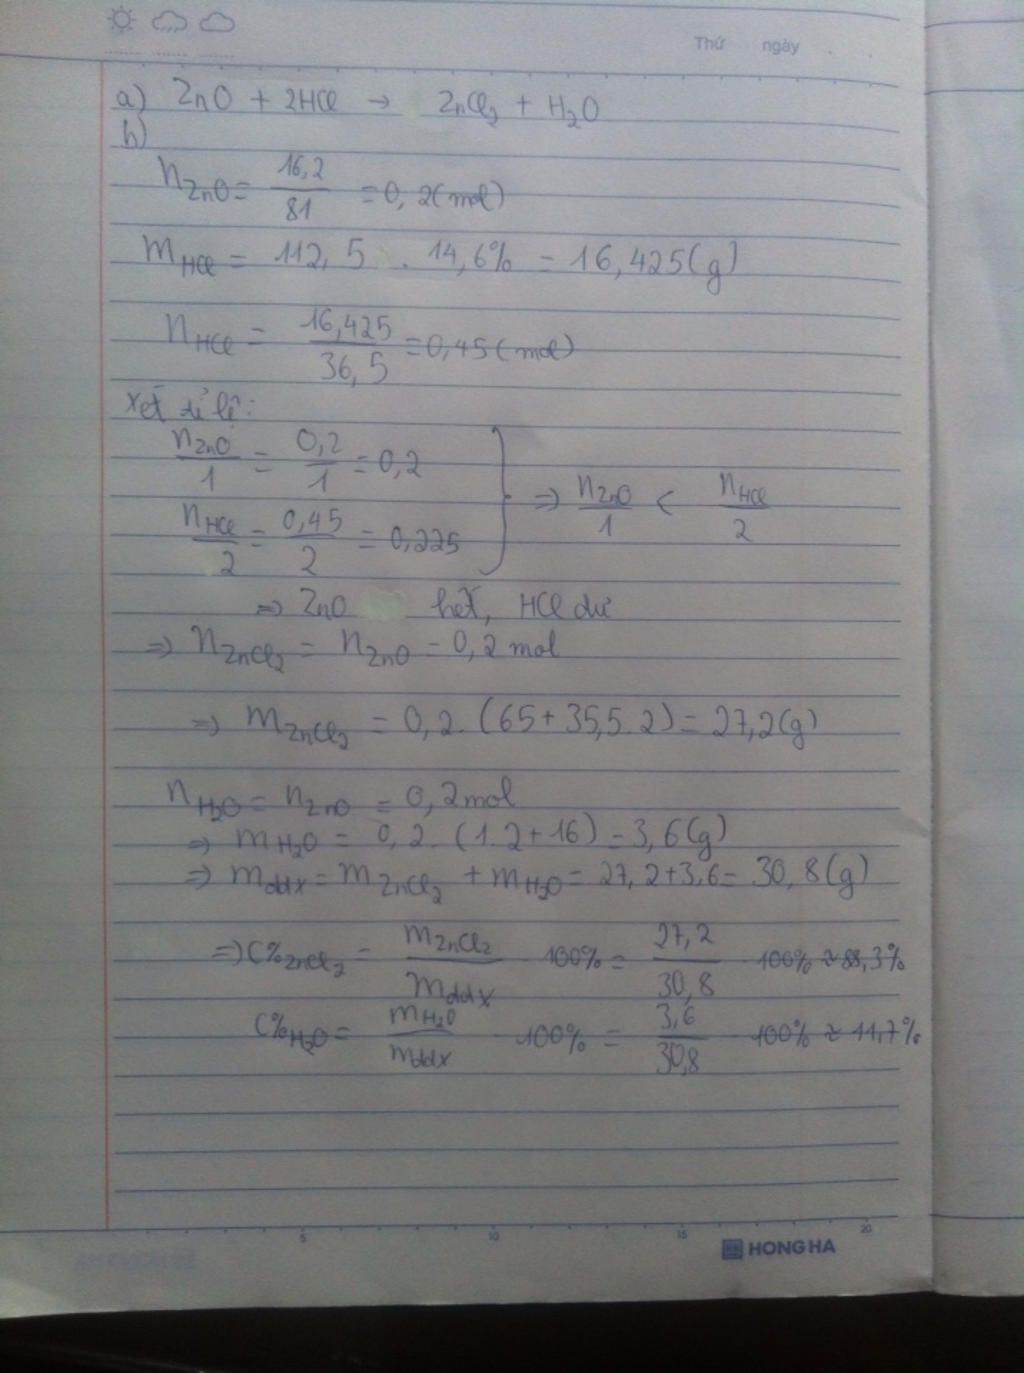 Thứ ngày
a) ZnO + 2HCl → ZnCl₂ + H₂O
b)
n ZnO = 16,2/81 = 0,2 (mol)
m HCl = 112,5 . 14,6% = 16,425 (g)
n HCl = 16,425/36,5 = 0,45 (mol)
Xét tỉ lệ:
n ZnO/1 = 0,2/1 = 0,2
n HCl/2 = 0,45/2 = 0,225
⇒ n ZnO/1 < n HCl/2
⇒ ZnO hết, HCl dư
⇒ n ZnCl₂ = n ZnO = 0,2 mol
⇒ m ZnCl₂ = 0,2 . (65 + 35,5 . 2) = 27,2 (g)
n H₂O = n ZnO = 0,2 mol
⇒ m H₂O = 0,2 . (1 . 2 + 16) = 3,6 (g)
⇒ m ddX = m ZnCl₂ + m H₂O = 27,2 + 3,6 = 30,8 (g)
⇒ C% ZnCl₂ = m ZnCl₂/m ddX 100% = 27,2/30,8 100% ≈ 88,3%
C% H₂O = m H₂O/m ddX 100% = 3,6/30,8 100% ≈ 11,7%
5 10 15 20
HONG HA